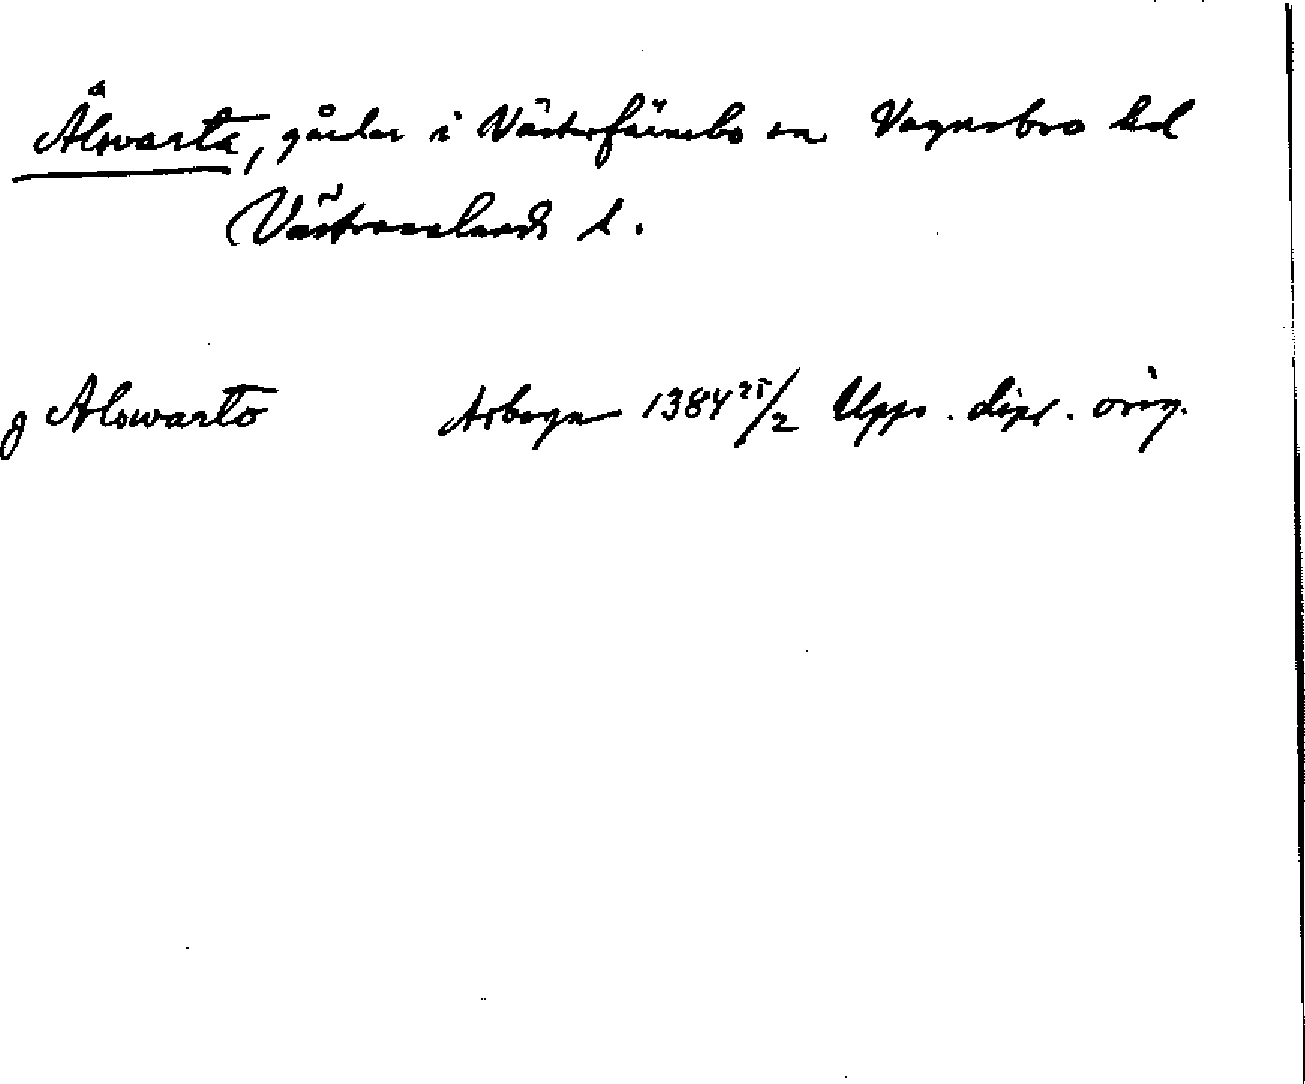 Ålsvarta, gårdar i Västerfärnebo sn Vagnsbro hd
Västmanlands l.
J Alswarto Arboga 1384 25/2 Upps. dipl. orig.